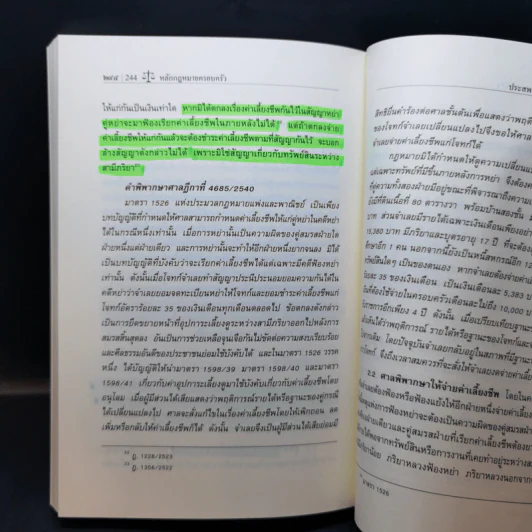 ๒๔๔ | 244 หลักกฎหมายครอบครัว
ให้แก่กันเป็นเงินเท่าใด หากมิได้ตกลงเรื่องค่าเลี้ยงชีพกันไว้ในสัญญาหย่า
คู่หย่าจะมาฟ้องเรียกค่าเลี้ยงชีพในภายหลังไม่ได้ แต่ถ้าตกลงจ่าย
ค่าเลี้ยงชีพให้แก่กันแล้วจะต้องชำระค่าเลี้ยงชีพตามที่สัญญากันไว้ จะบอก
ล้างสัญญาดังกล่าวไม่ได้ เพราะมิใช่สัญญาเกี่ยวกับทรัพย์สินระหว่าง
สามีภริยา
คำพิพากษาศาลฎีกาที่ 4685/2540
มาตรา 1526 แห่งประมวลกฎหมายแพ่งและพาณิชย์ เป็นเพียง
บทบัญญัติที่กำหนดให้ศาลสามารถกำหนดค่าเลี้ยงชีพให้แก่คู่หย่าในคดีหย่า
ได้ในกรณีหนึ่งเท่านั้น เมื่อการหย่านั้นเป็นความผิดของคู่สมรสฝ่ายใด
ฝ่ายหนึ่งแต่ฝ่ายเดียว และการหย่านั้นจะทำให้อีกฝ่ายหนึ่งยากจนลง มิได้
เป็นบทบัญญัติที่บังคับว่าจะเรียกค่าเลี้ยงชีพได้แต่เฉพาะมีคดีฟ้องหย่า
เท่านั้น ดังนั้นเมื่อโจทก์จำเลยทำสัญญาประนีประนอมยอมความกันได้ใน
คดีหย่าว่าจำเลยยอมจดทะเบียนหย่าให้โจทก์และยอมชำระค่าเลี้ยงชีพแก่
โจทก์อัตราร้อยละ 35 ของเงินเดือนทุกเดือนตลอดไป ข้อตกลงดังกล่าว
เป็นการยืดขยายหน้าที่อุปการะเลี้ยงดูระหว่างสามีภริยาออกไปหลังการ
สมรสสิ้นสุดลง อันเป็นการช่วยเหลือจุนเจือกันไม่ขัดต่อความสงบเรียบร้อย
และศีลธรรมอันดีของประชาชนย่อมใช้บังคับได้ และในมาตรา 1526 วรรค
หนึ่ง ได้บัญญัติให้นำมาตรา 1598/39 มาตรา 1598/40 และมาตรา
1598/41 เกี่ยวกับค่าอุปการะเลี้ยงดูมาใช้บังคับเกี่ยวกับค่าเลี้ยงชีพโดย
อนุโลม เมื่อผู้มีส่วนได้เสียแสดงว่าพฤติการณ์รายได้หรือฐานะของคู่กรณี
ได้เปลี่ยนแปลงไป ศาลจะสั่งแก้ไขในเรื่องค่าเลี้ยงชีพโดยให้เพิกถอน ลด
เพิ่มหรือกลับให้ค่าเลี้ยงชีพก็ได้ ดังนั้น จำเลยจึงเป็นผู้มีส่วนได้เสียย่อมมี
ฎ. 1228/2523
ฎ. 1356/2522
ประสพ
สิทธิยื่นคำร้องต่อศาลชั้นต้นเพื่อแสดงว่าพฤติ
ของโจทก์จำเลยเปลี่ยนแปลงไปจึงขอให้ศาล
จ่ายค่าเลี้ยงชีพแก่โจทก์ได้
กฎหมายมิได้กำหนดให้ดูความเปลี่ยน
เฉพาะทรัพย์ที่มีขึ้นภายหลังการหย่า
ดูความทั้งสองฝ่ายมีอยู่ขณะที่พิจารณาถึงความ
มีที่ดินเนื้อที่ 80 ตารางวา พร้อมบ้านสองชั้น
ส่วนจำเลยมีรายได้เฉพาะเงินเดือนเพียงอย่าง
16,380 บาท มีภริยาและบุตรอายุ 17 ปี ที่จะต้อง
ศึกษาอีก 1 คน นอกจากนี้ยังเป็นหนี้สหกรณ์อีก
ทรัพย์สินใดๆ เป็นของตนเอง หากจำเลยต้องจ่าย
35 ของเงินเดือน เป็นเงินเดือนละ 5,383
ต้องใช้จ่ายในครอบครัวเดือนละไม่ถึง 10,000 บาท
ราชการอีกเพียง 4 ปี ดังนั้น เมื่อเปรียบเทียบฐานะ
เห็นได้ว่าพฤติการณ์ รายได้หรือฐานะของโจทก์
โดยปัจจุบันจำเลยกลับอยู่ในสภาพที่มีฐานะ
จึงถึงเวลาสมควรที่จะสั่งให้จำเลยงดจ่ายค่า
2.2 ศาลพิพากษาให้จ่ายค่าเลี้ยงชีพ
มาตรา 1526